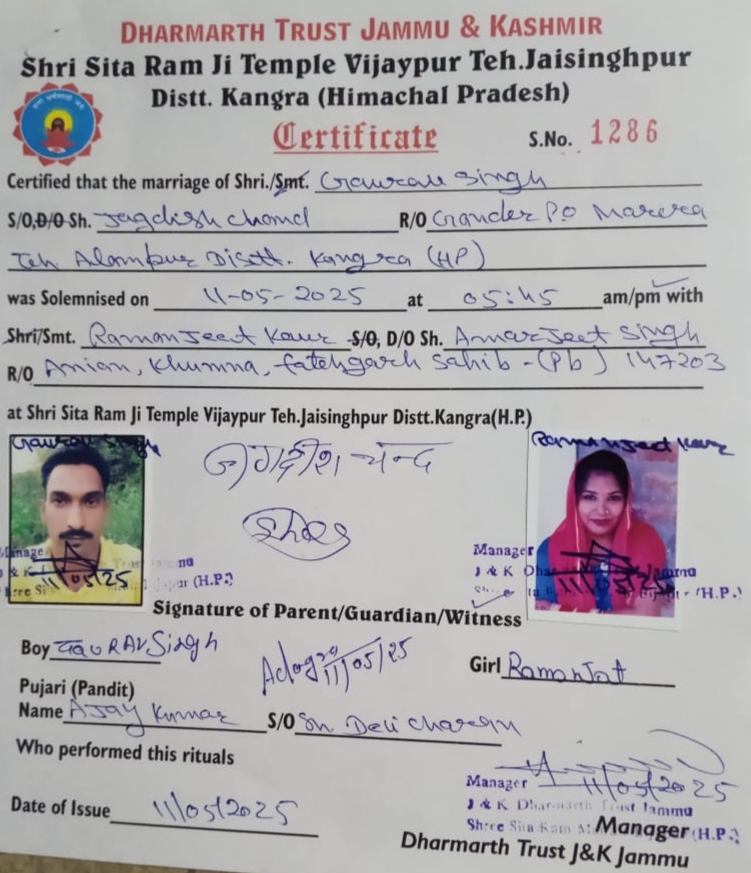 DHARMARTH TRUST JAMMU & KASHMIR
Shri Sita Ram Ji Temple Vijaypur Teh.Jaisinghpur
Distt. Kangra (Himachal Pradesh)
Certificate S.No. 1286
Certified that the marriage of Shri./Smt. Gaurav Singh
S/O,D/O Sh. Jagdish Chand R/O Gander P.O Marera
Teh Alampur Disott. Kangra (HP)
was Solemnised on 11-05-2025 at 05:45 am/pm with
Shri/Smt. RamanJeet Kaur S/O, D/O Sh. AmarJeet Singh
R/O Anian, Khumna, fatehgarh Sahib-(Pb) 147203
at Shri Sita Ram Ji Temple Vijaypur Teh.Jaisinghpur Distt.Kangra(H.P.)
Gaurav Singh जगदीश चन्द Ramanjeet Kaur
Manager
J & K Trust Jammu
11/05/25
Shree Si (H.P.)
Manager
J & K Dharmarth Trust Jammu
11/05/25
(H.P.)
Signature of Parent/Guardian/Witness
Boy GauRAV Singh 11/05/25 Girl RamanJat
Pujari (Pandit)
Name AJAY Kumar S/O Sh Devi Charan
Who performed this rituals
Manager 11/05/2025
J & K Dharmarth Trust Jammu
Shree Sita Ram (H.P.)
Date of Issue 11/05/2025 Manager
Dharmarth Trust J&K Jammu